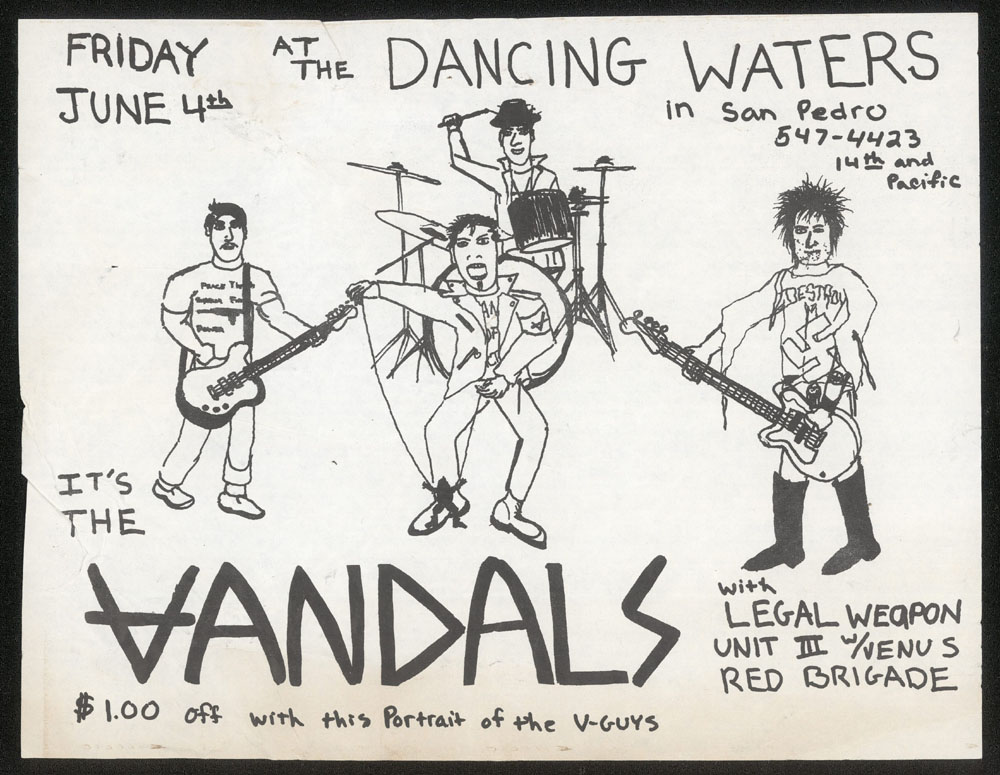 FRIDAY
JUNE 4th
AT
THE
DANCING WATERS
in San Pedro
547-4423
14th and
Pacific
DESTROY
IT'S
THE
VANDALS
with
LEGAL WEAPON
UNIT III w/VENUS
RED BRIGADE
$1.00 off with this Portrait of the V-GUYS